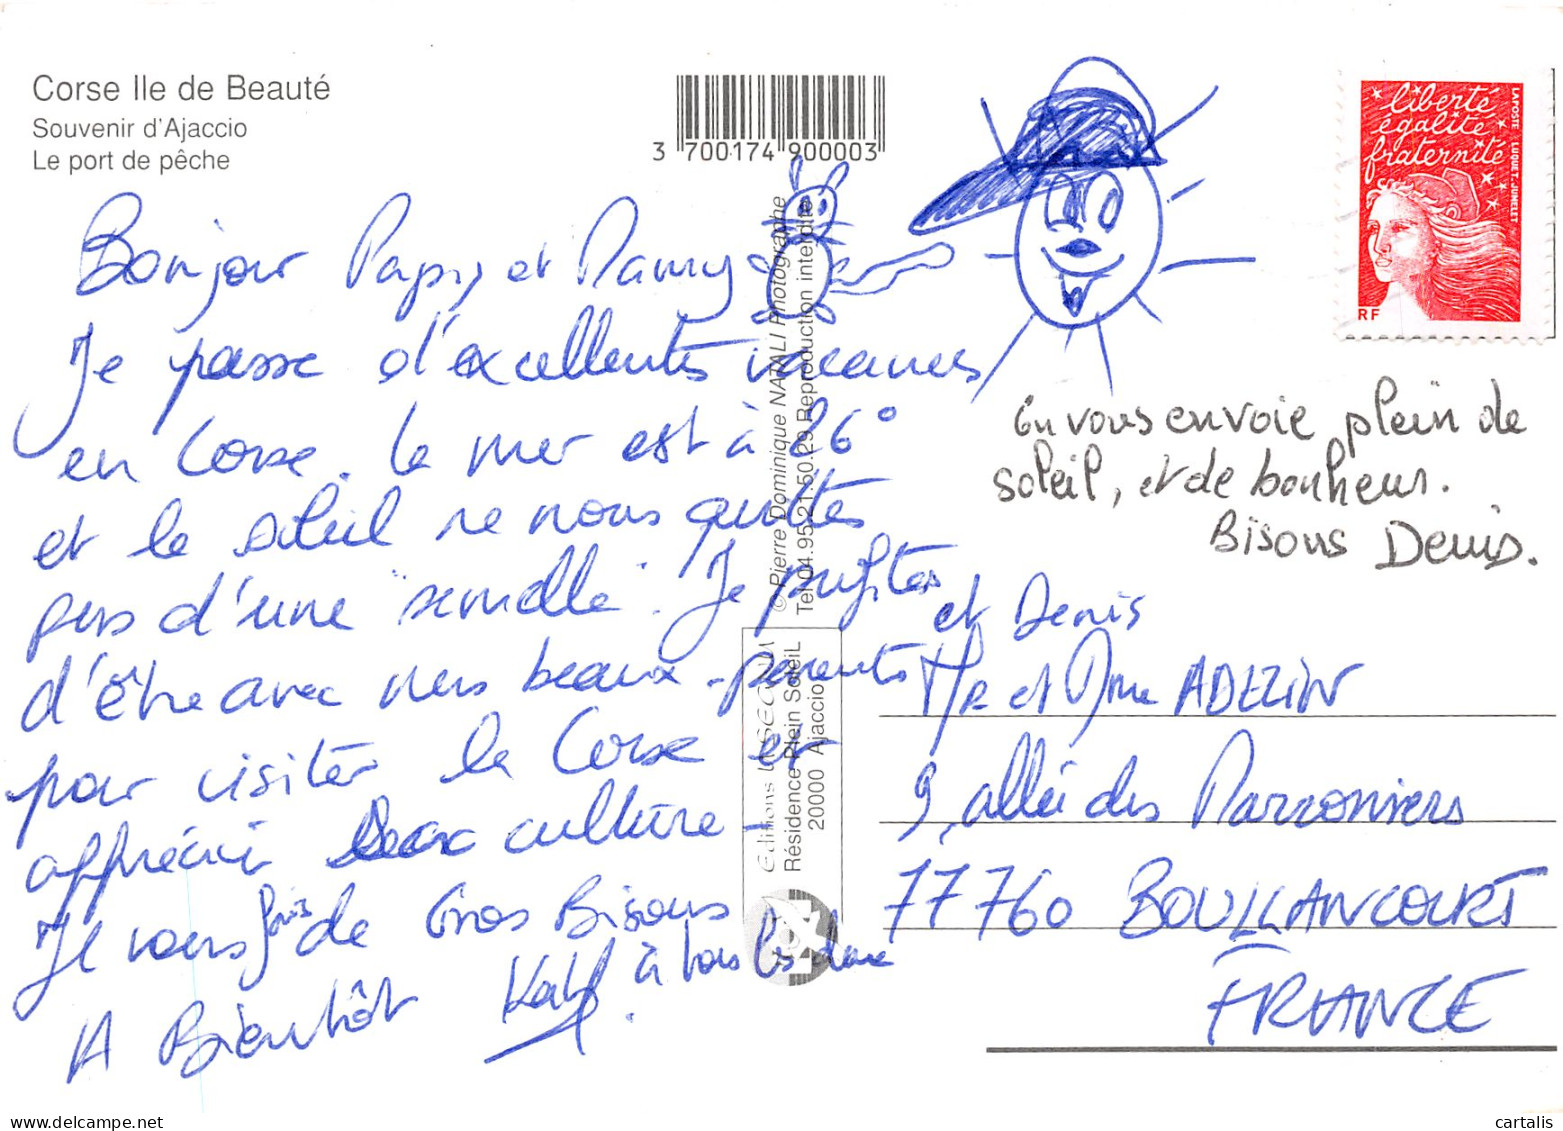 Corse Ile de Beauté
Souvenir d'Ajaccio
Le port de pêche
3 700174 900003
liberté
égalité
fraternité
LA POSTE LUQUET-JUMELET
RF
Bonjour Papy et Mamy
Je passe d'excellentes vacances
en Corse. la mer est à 26°
et le soleil ne nous quittes
pas d'une "semelle". Je profites
d'être avec mes beaux-parents
pour visiter la Corse et
apprécier culture
Je vous fais de Gros Bisous
à tous les deux
A Bientôt
© Pierre Dominique NATALI Photographe
Tel 04.95.21.50.29 Reproduction interdite
Editions
Résidence Plein SoleiL
20000 Ajaccio
On vous envoie plein de
soleil, et de bonheur.
Bisous Denis.
et Denis
Mr et Mme ADEZIN
9, allée des Marronniers
77760 BOULLANCOURT
FRANCE
cartalis
delcampe.net